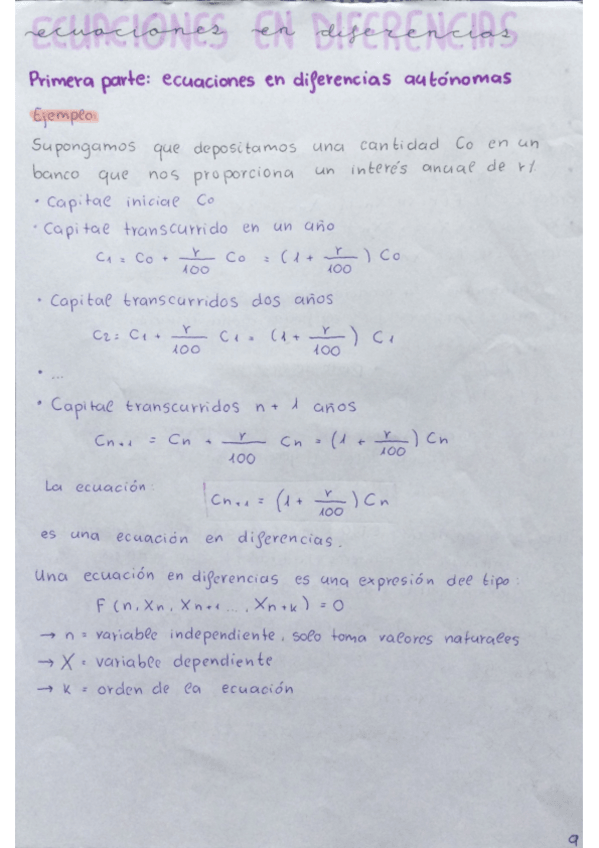 ECUACIONES EN DIFERENCIAS
ecuaciones en diferencias
Primera parte: ecuaciones en diferencias autónomas
Ejemplo:
Supongamos que depositamos una cantidad Co en un
banco que nos proporciona un interés anual de r%.
• Capital inicial Co
• Capital transcurrido en un año
C1 = Co + r/100 Co = (1 + r/100) Co
• Capital transcurridos dos años
C2 = C1 + r/100 C1 = (1 + r/100) C1
• ...
• Capital transcurridos n + 1 años
Cn+1 = Cn + r/100 Cn = (1 + r/100) Cn
La ecuación:
Cn+1 = (1 + r/100) Cn
es una ecuación en diferencias.
Una ecuación en diferencias es una expresión del tipo:
F (n, Xn, Xn+1 ..., Xn+k) = 0
→ n = variable independiente, solo toma valores naturales
→ X = variable dependiente
→ k = orden de la ecuación
9